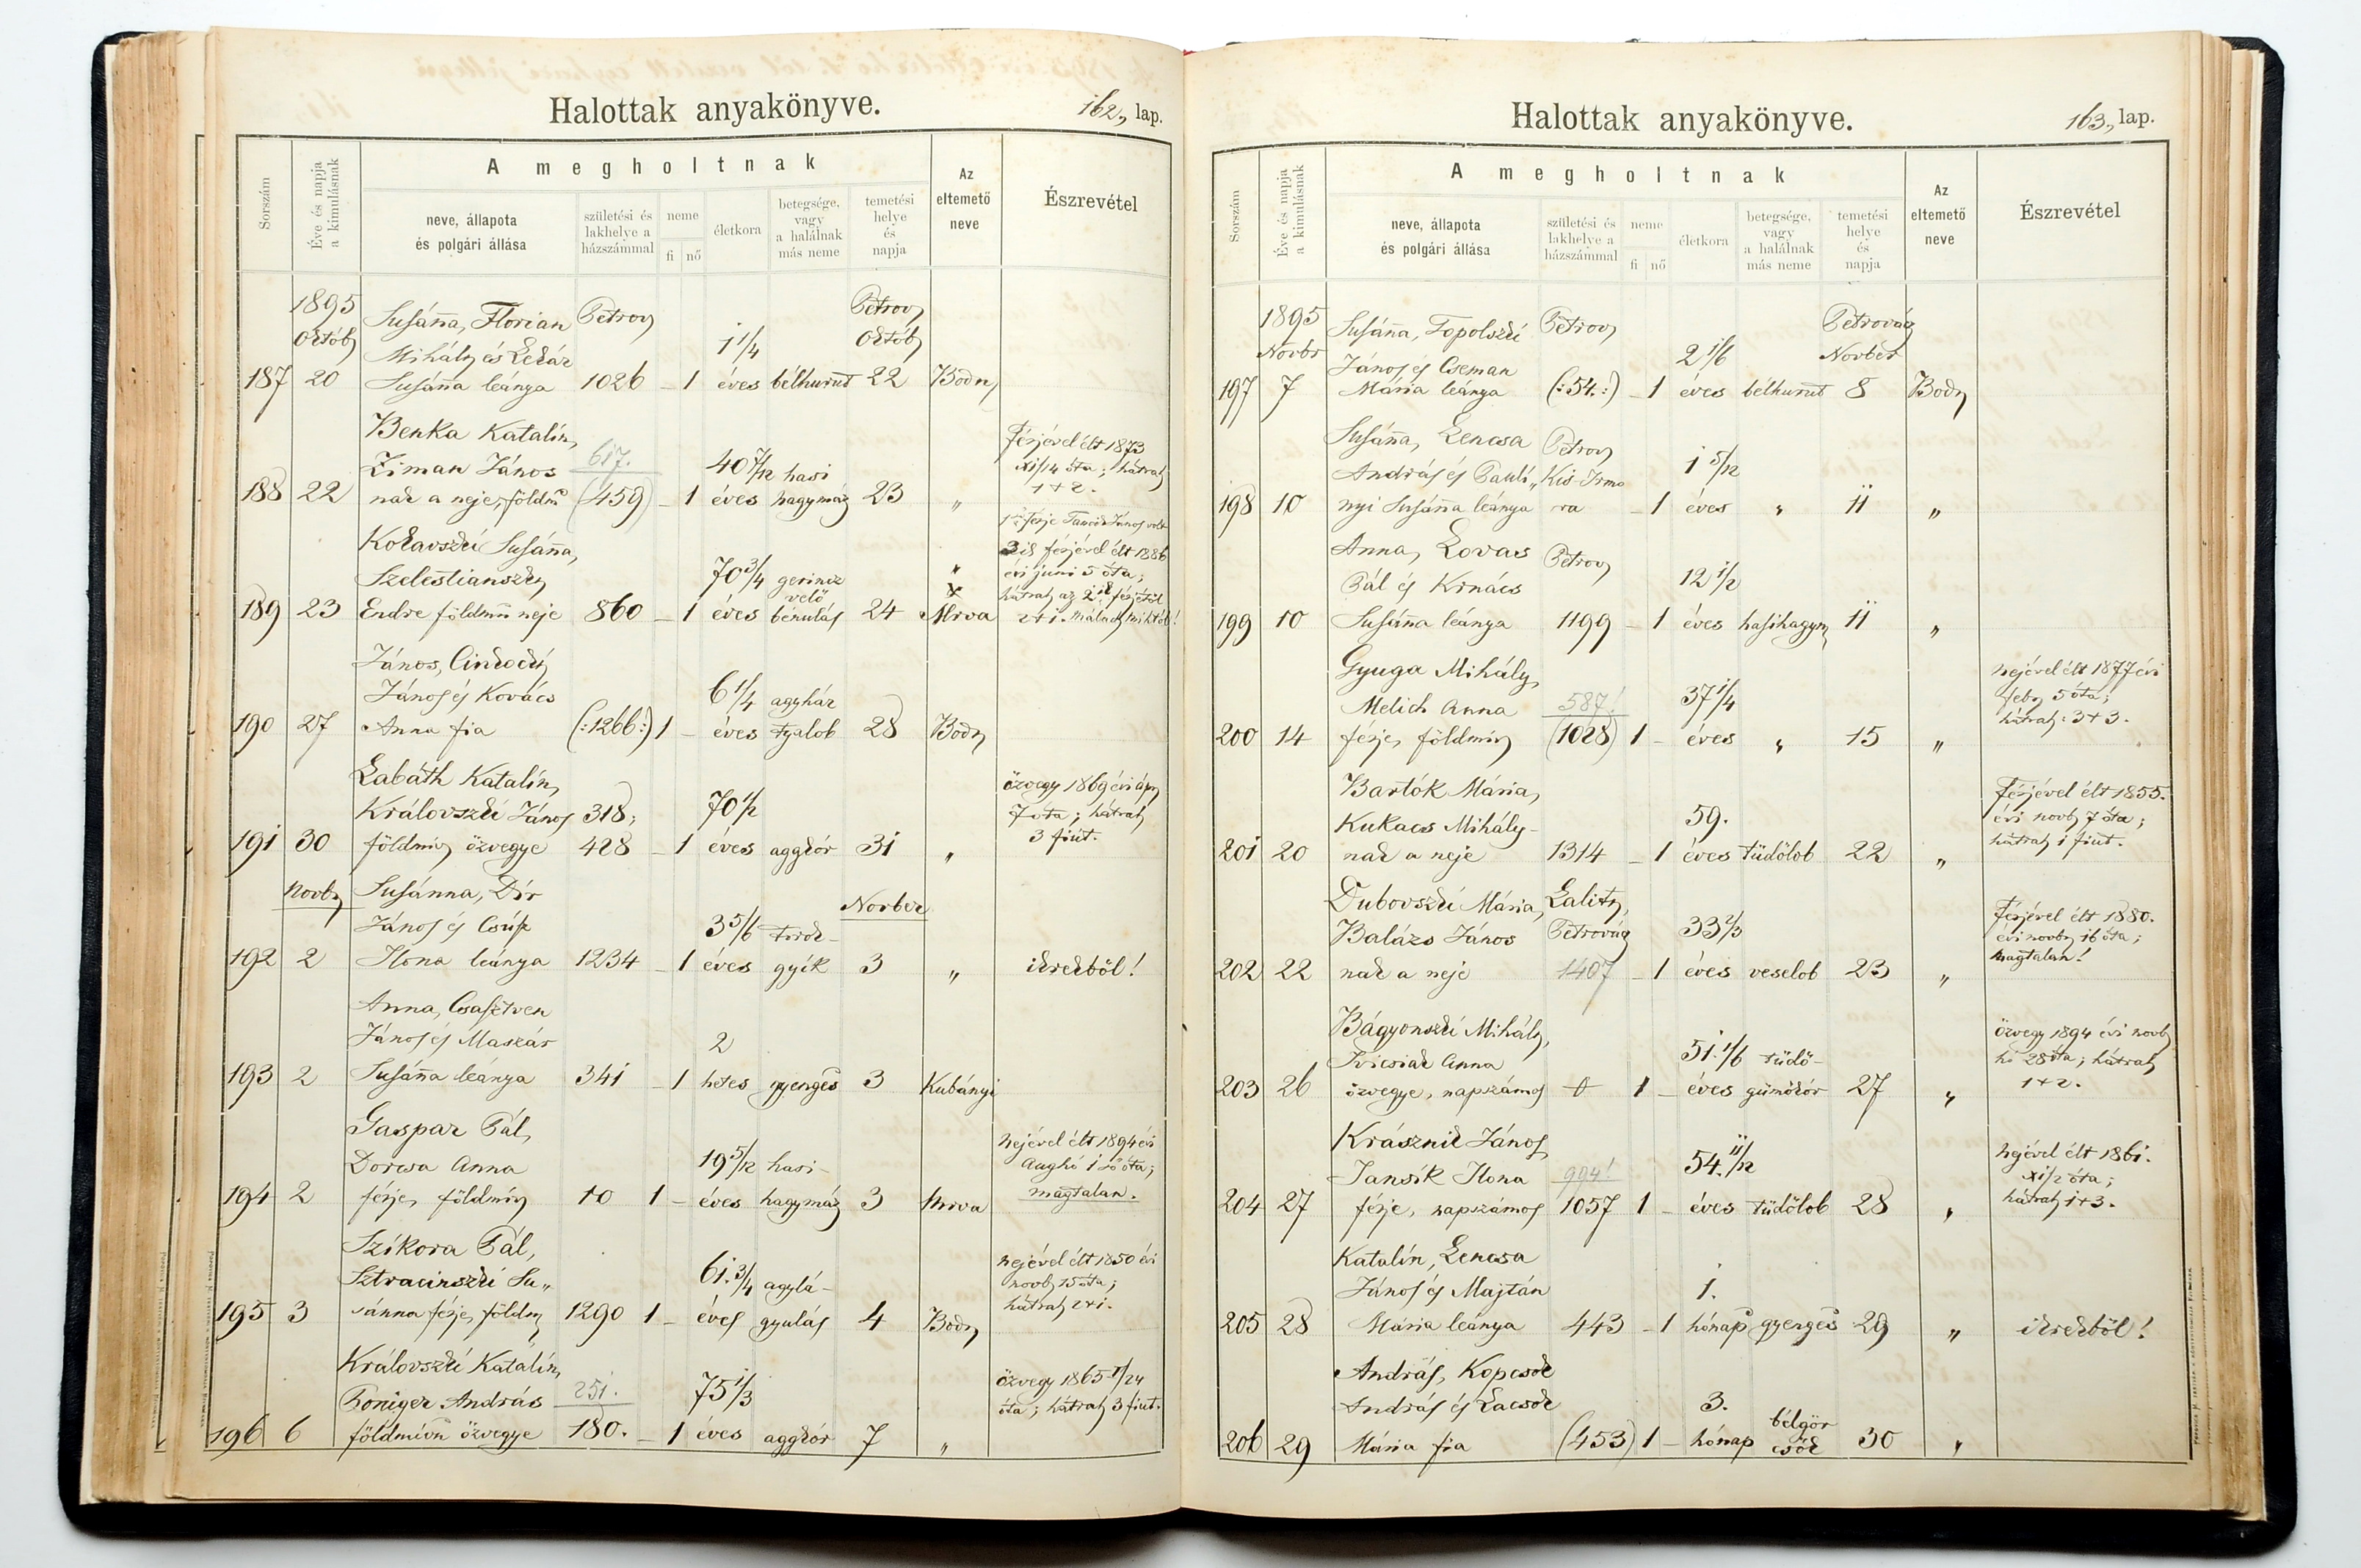 Halottak anyakönyve.
162, lap.
Sorszám
Éve és napja a kimulásnak
A megholtnak
neve, állapota és polgári állása
születési és lakhelye a házszámmal
neme
fi nő
életkora
betegsége, vagy a halálnak más neme
temetési helye és napja
Az eltemető neve
Észrevétel
1895 Susánna, Florian Petrov Petrov
Októb Mihály és 1 1/4 Októb
187 20 Susánna leánya 1026 – 1 éves bélhurut 22 Bodn
Benka Katalin, Férjével élt 1873
Ziman János 617. 40 7/12 hasi XI/14 óta; hátrah
188 22 nak a neje, földm (459) – 1 éves hagymáz 23 " 1+2.
Susánna, 3ik férjével élt 1886
70 3/4 gerincz évi juni 5 óta;
velő hátrah az 2ik férjétől
189 23 Endre földmn neje 860 – 1 éves bénulás 24 Mrva
János,
János és Kovács 6 1/4 agyhár
190 27 Anna fia (:1266:) 1 – éves tyalob 28 Bodn
Labáth Katalin, özvegy 1869 évi ápr
Královszki János 318; 70 1/2 7 óta; hátrah
191 30 földmiv özvegye 428 – 1 éves aggkór 31 " 3 fiút.
Novb Susánna, Dir Novber
János és Csúp 3 5/6 torok-
192 2 Ilona leánya 1234 – 1 éves gyík 3 " ikrekből!
Anna,
János és Maszár 2
193 2 Susánna leánya 341 – 1 hetes gyenges 3 Kubányi
Gaspar Pál, nejével élt 1894 évi
Dorcsa Anna 19 5/12 hasi-
194 2 férje, földmiv 10 1 – éves hagymáz 3 Mrva magtalan.
Szíkora Pál, nejével élt 1850 évi
Sztracinszki Su„ 61. 3/4 agylá- novb 15 óta;
195 3 sánna férje, földm 1290 1 – éves gyulás 4 Bodn hátrah 2+1.
Královszki Katalin,
Poniger András 251. 75 1/3 óta; hátrah 3 fiút.
196 6 földmivn özvegye 180. – 1 éves aggkór 7 "
Halottak anyakönyve.
163, lap.
Sorszám
Éve és napja a kimulásnak
A megholtnak
neve, állapota és polgári állása
születési és lakhelye a házszámmal
neme
fi nő
életkora
betegsége, vagy a halálnak más neme
temetési helye és napja
Az eltemető neve
Észrevétel
1895 Susánna, Topolszki Petrov Petrovág
Novbr János és Cseman 2 1/6 Novber
197 7 Mária leánya (:54.:) – 1 éves bélhurut 8 Bodn
Susánna, Lencsa Petrov
András és Pauli„ 1 5/12
198 10 nyi Susánna leánya – 1 éves " 11 "
Anna, Lovas Petrov
Pál és Krnács 12 1/2
199 10 Susánna leánya 1199 – 1 éves hasihagym 11 "
Gyuga Mihály, nejével élt 1877 évi
Melich Anna 587! 37 1/4 febr 5 óta;
200 14 férje, földmiv (1028) 1 – éves " 15 " hátrah: 3+3.
Bartók Mária, Férjével élt 1855.
Kukacs Mihály- 59. évi novb 7 óta;
201 20 nak a neje 1314 – 1 éves tüdőlob 22 " hátrah 1 fiút.
Dubovszki Mária, Lality, Férjével élt 1880.
Balázs János Petrovág 33 2/3 évi novb 16 óta;
202 22 nak a neje 1407 – 1 éves veselob 23 " magtalan!
Bágyonszki Mihály, özvegy 1894 évi novb
Anna 51. 1/6 tüdő- hó 28 óta; hátrah
203 26 özvegye, napszámos 0 1 – éves gümőkór 27 " 1+2.
Krásznik János, nejével élt 1861.
Jansík Ilona 994! 54. 11/12 XI/2 óta;
204 27 férje, napszámos 1057 1 – éves tüdőlob 28 " hátrah 1+3.
Katalin, Lencsa
János és Majtán 1.
205 28 Mária leánya 443 – 1 hónap gyenges 29 " ikrekből!
András, Kopcsok
András és Lacsok 3. bélgör
206 29 Mária fia (453) 1 – hónap csök 30 "